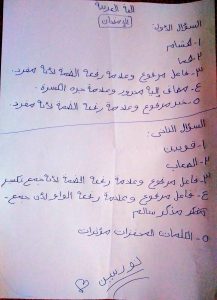 لغة العربية
الإمتحان
السؤال الأول:
١- هشام
٢- هما
٣- فاعل مرفوع وعلامة رفعه الضمة لأنه مفرد.
٤- مضاف إليه مجرور وعلامة جره الكسرة.
٥- خبر مرفوع وعلامة رفعه الضمة لأنه مفرد.
السؤال الثاني:
١- قويين
٢- الصعاب
٣- فاعل مرفوع وعلامة رفعه الضمة لأنه جمع تكسير
٤- فاعل مرفوع وعلامة رفعه الواو لأنه جمع
مذكر سالم
٥- الكلمات مؤثرات